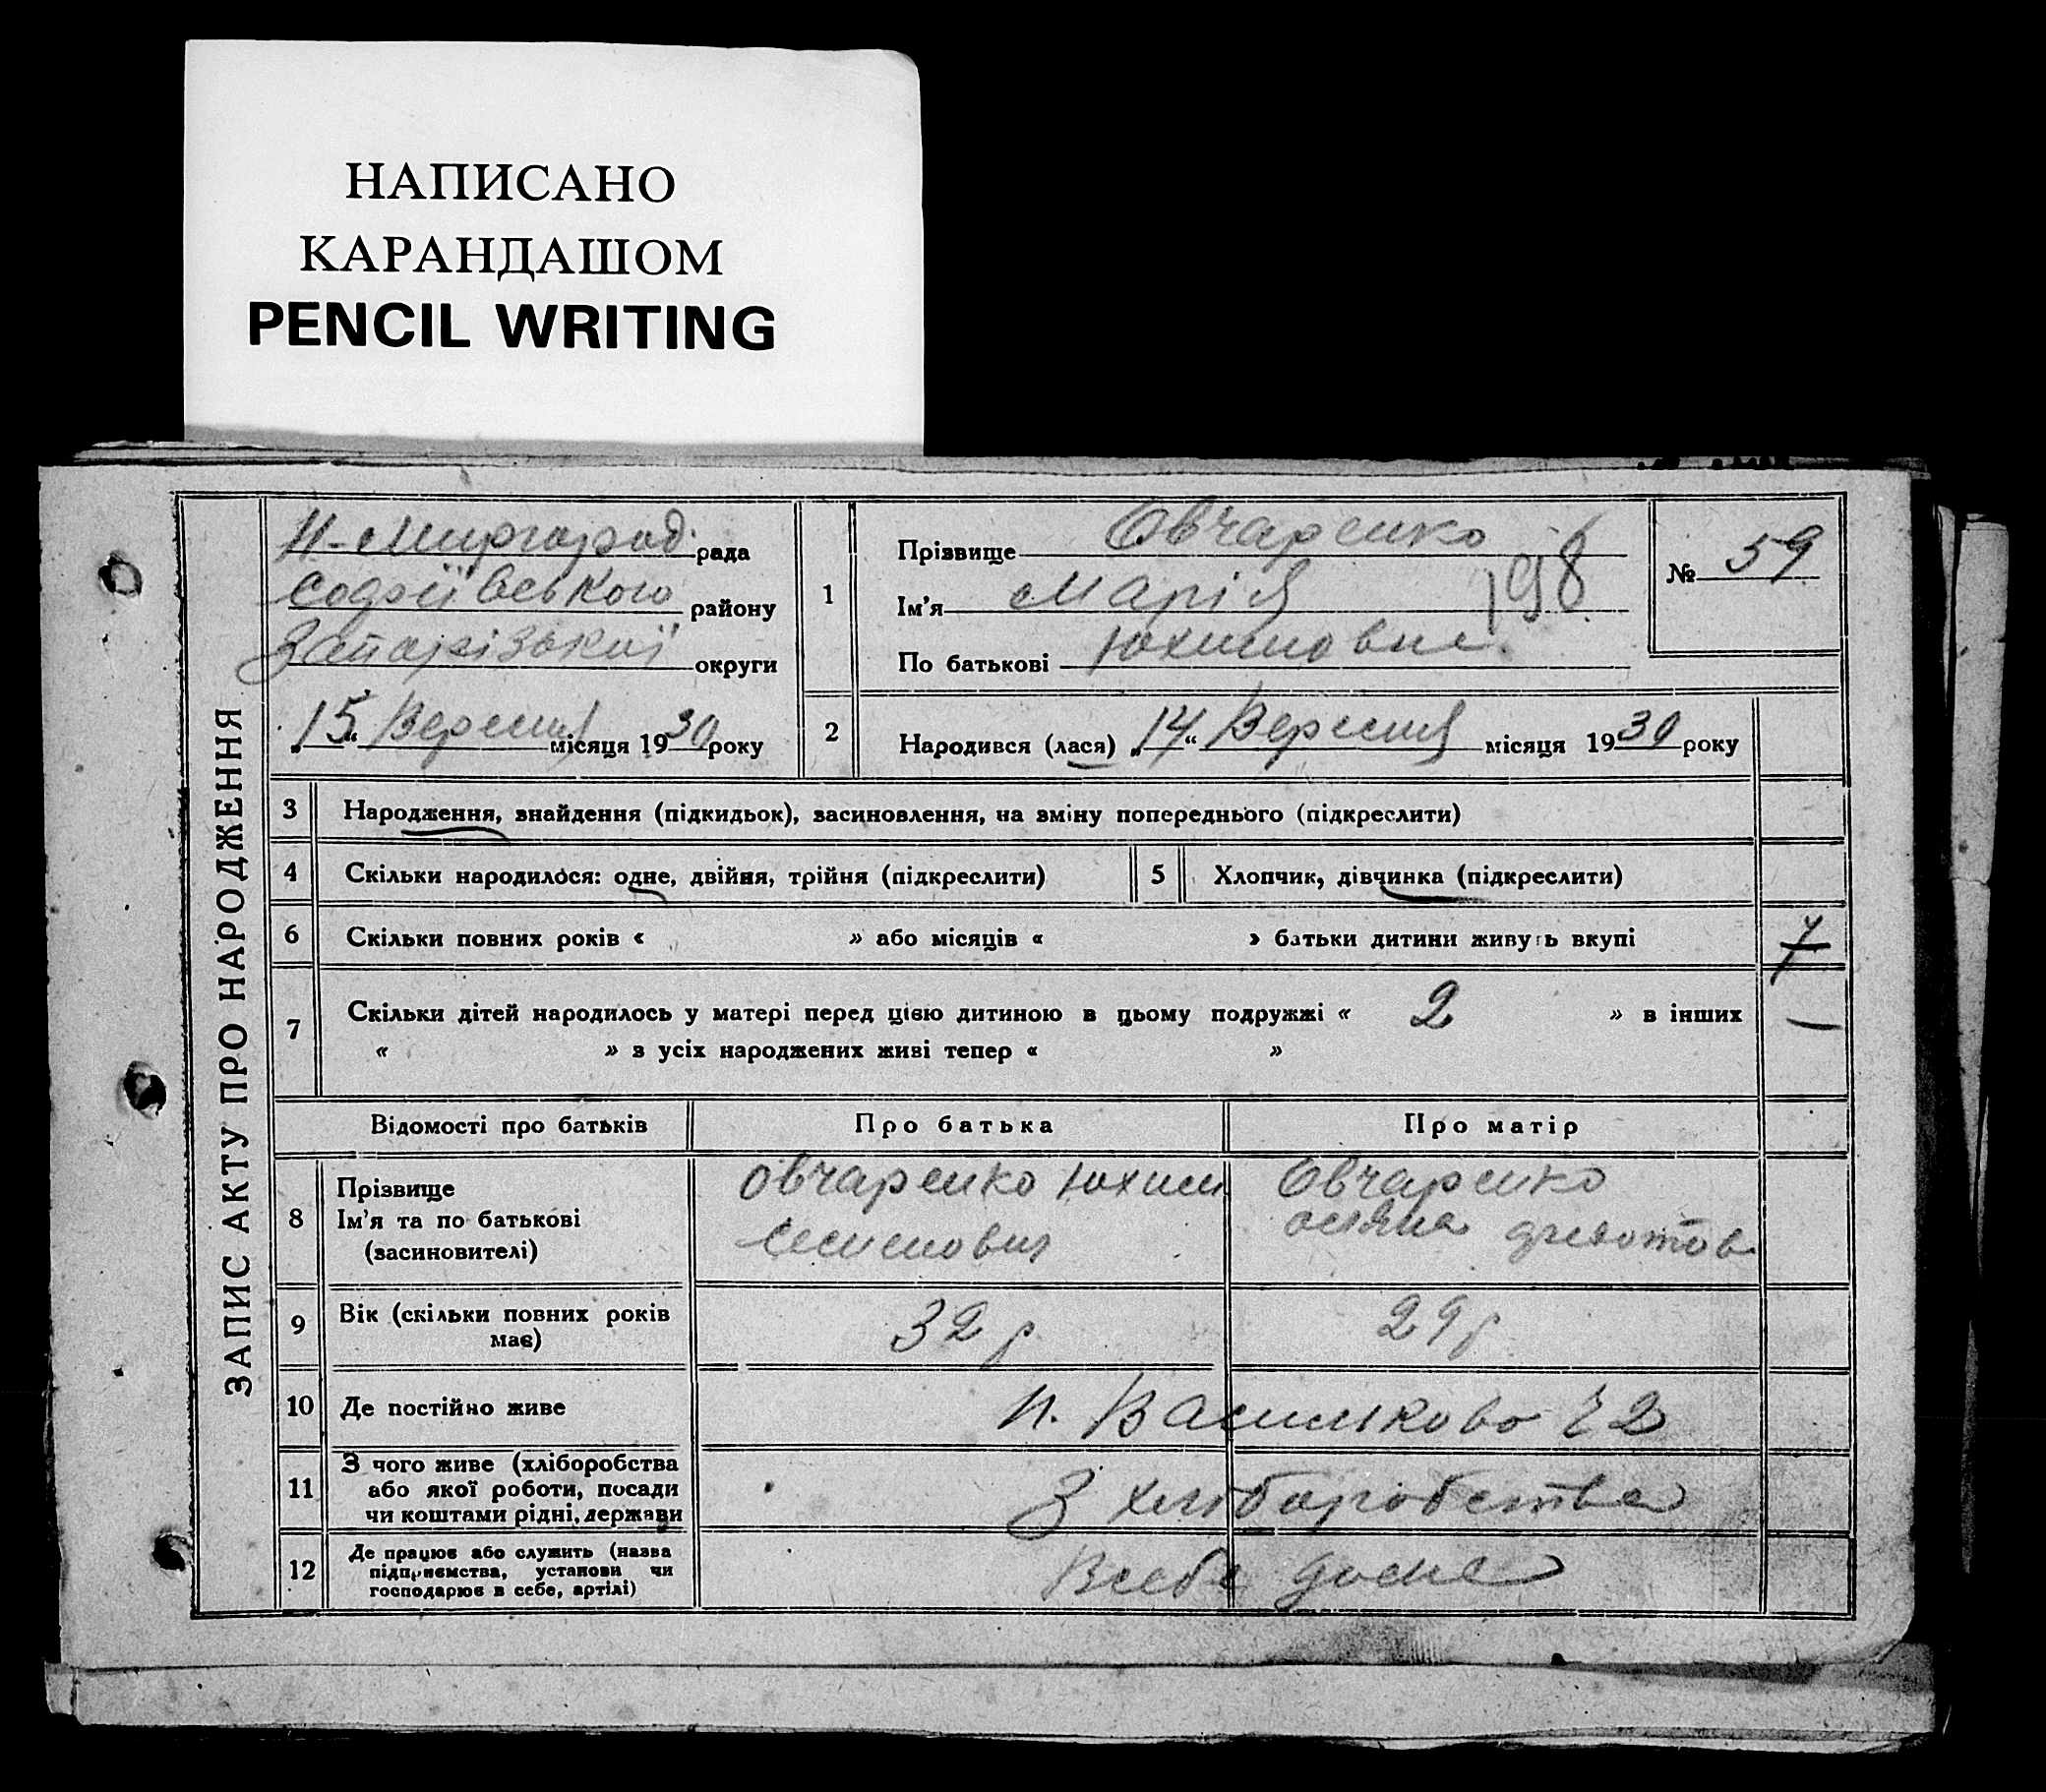 НАПИСАНО
КАРАНДАШОМ
PENCIL WRITING
ЗАПИС АКТУ ПРО НАРОДЖЕННЯ
Н-Миргород. рада
Софіївського району
Запорізької округи
„15“ Вересня місяця 1930 року
1
Прізвище Овчаренко
Ім'я Марія
198
По батькові Юхимовна
№ 59
2 Народився (лася) „14“ Вересня місяця 1930 року
3 Народження, знайдення (підкидьок), засиновлення, на зміну попереднього (підкреслити)
4 Скільки народилося: одне, двійня, трійня (підкреслити)
5 Хлопчик, дівчинка (підкреслити)
6 Скільки повних років « » або місяців « » батьки дитини живуть вкупі
7 Скільки дітей народилось у матері перед цією дитиною в цьому подружжі « 2 » в інших —
« » з усіх народжених живі тепер « »
Відомості про батьків Про батька Про матір
8 Прізвище
Ім'я та по батькові
(засиновителі)
Овчаренко Юхим
Овчаренко
9 Вік (скільки повних років
має)
32 р
29 р
10 Де постійно живе
Н. Васильково 2
11 З чого живе (хліборобства
або якої роботи, посади
чи коштами рідні, держави
З хліборобства
12 Де працює або служить (назва
підприємства, установи чи
господарює в себе, артілі)
В себе дома